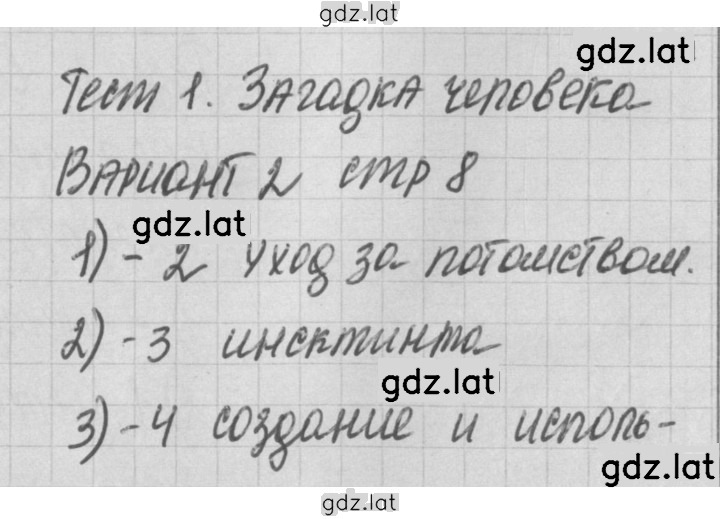 gdz.lat
gdz.lat
Тест 1. Загадка человека
Вариант 2 стр 8
gdz.lat
1) - 2 уход за потомством.
2) - 3 инсктинта
gdz.lat
3) - 4 создание и исполь-
gdz.lat
gdz.lat